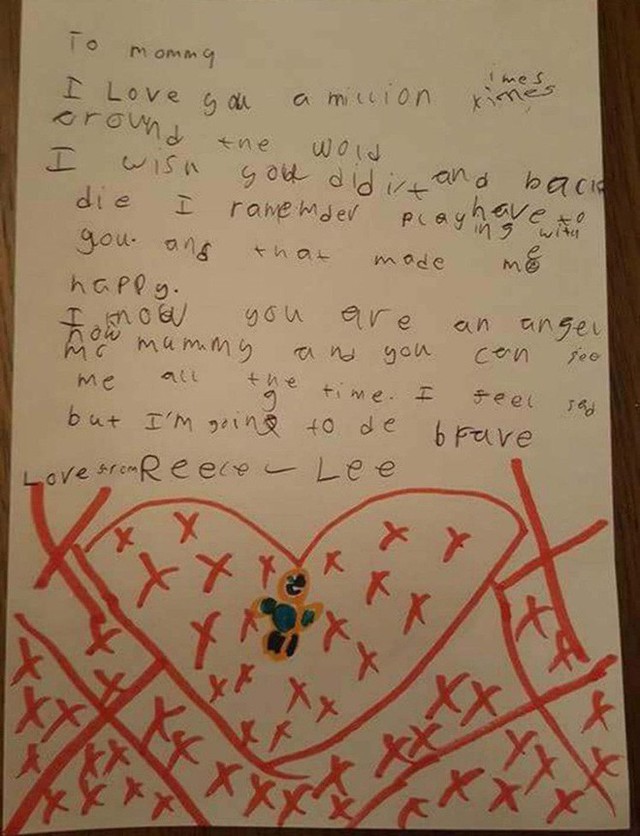 To mommy
I Love you a million times ximes
around the wold
I wish you didn't and back
die I ramemder playing have to with
you. and that made me
happy.
I know you are an angel
now mummy and you can see
me all the time. I feel sad
but I'm going to de brave
Love from Reece - Lee
x x x x x x x x x x x x x x x x x x x x x x x x